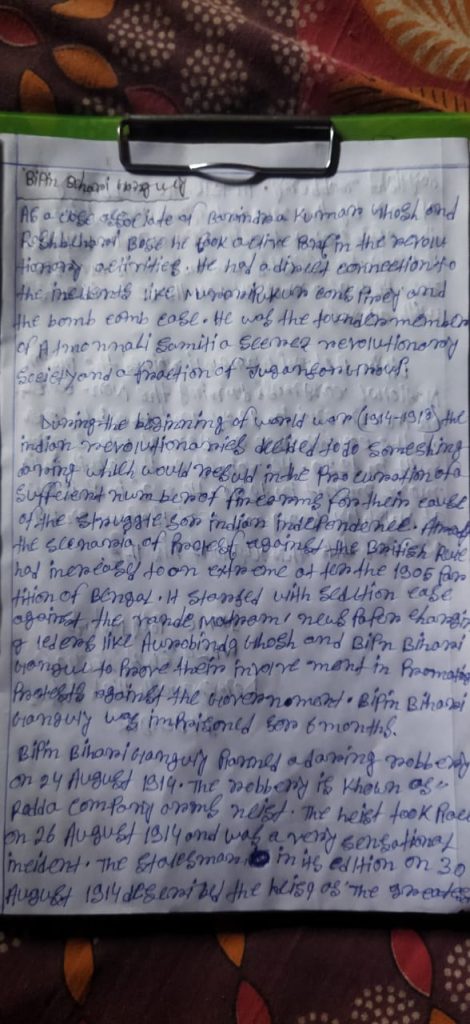 Bipin Behari Ganguly
As a close associate of Barindra Kumar Ghosh and
Rashbehari Bose he took active part in the revolu
tionary activities. He had a direct connection to
the incidents like Muraripukur conspiracy and
the bomb case. He was the founder member
of Atmonnati Samiti a secret revolutionary
society and a fraction of Jugantar
During the beginning of world war (1914-1918) the
indian revolutionaries decided to do something
daring which would result in the procuration of a
sufficient number of firearms for their cause
of the struggle for indian independence. Already
the scenario of protest against the British Rule
had increased to an extreme after the 1905 par
tition of Bengal. It started with sedition case
against the Vande Matram, news paper chargin
g leders like Aurobindo Ghosh and Bipin Bihari
Ganguly to prove their involvement in promoting
protests against the Government. Bipin Bihari
Ganguly was imprisoned for 6 months.
Bipin Bihari Ganguly planned a daring robbery
on 24 August 1914. The robbery is known as
Rodda company arms heist. The heist took place
on 26 August 1914 and was a very sensational
incident. The statesman in its edition on 30
August 1914 described the heist as "The greatest